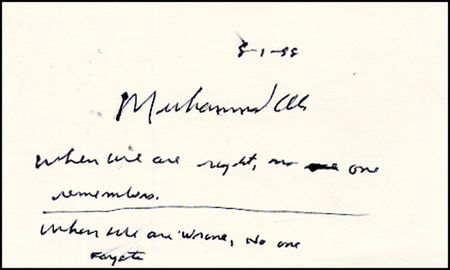 8-1-88
Muhammad Ali
When we are right, no one
remembers.
When we are wrong, No one
forgets